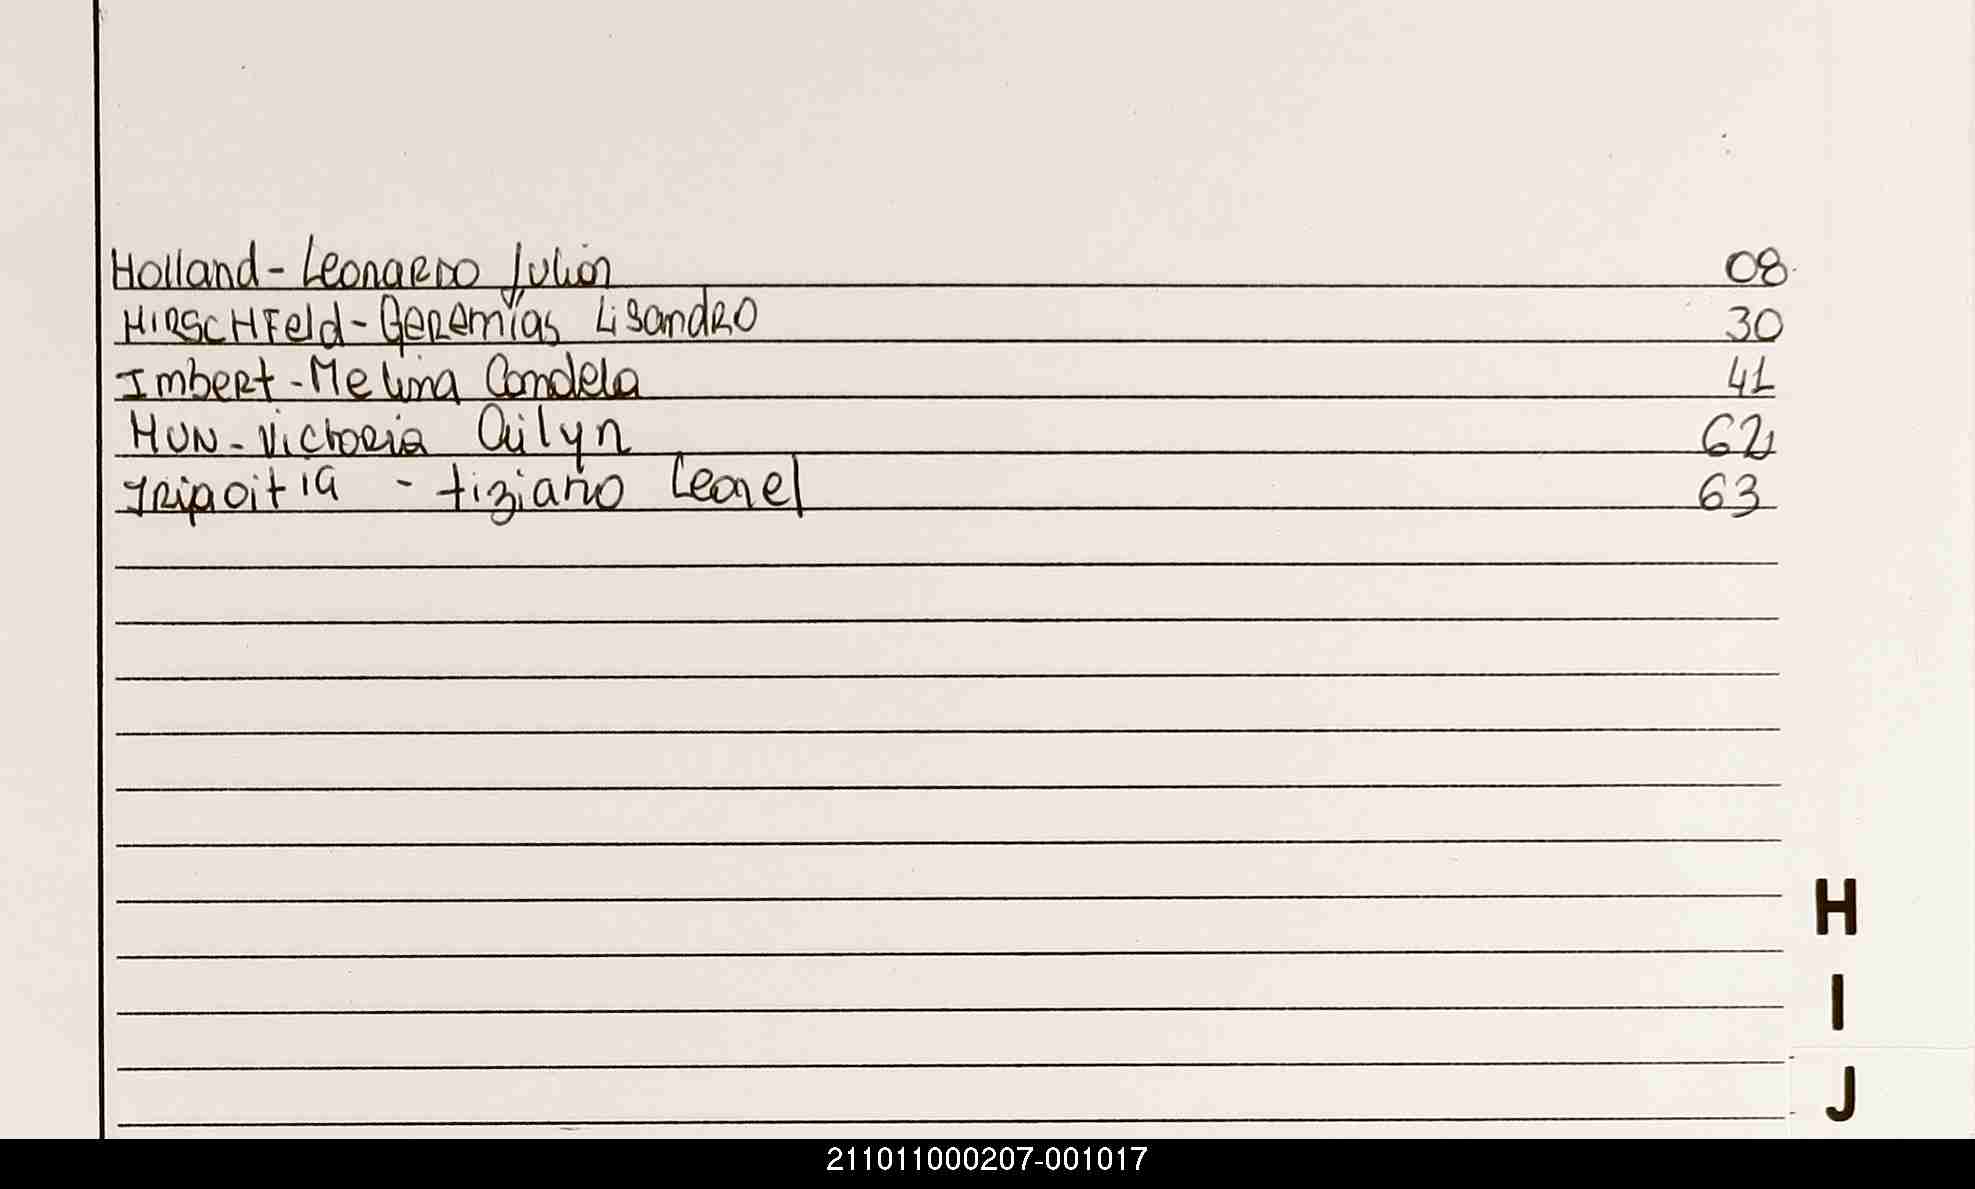 Holland - Leonardo Julián 08
HIRSCHFeld - Geremías Lisandro 30
Imbert - Melina Candela 41
HUN - Victoria Ailyn 62
Iripoitia - tiziano Leonel 63
H
I
J
211011000207-001017